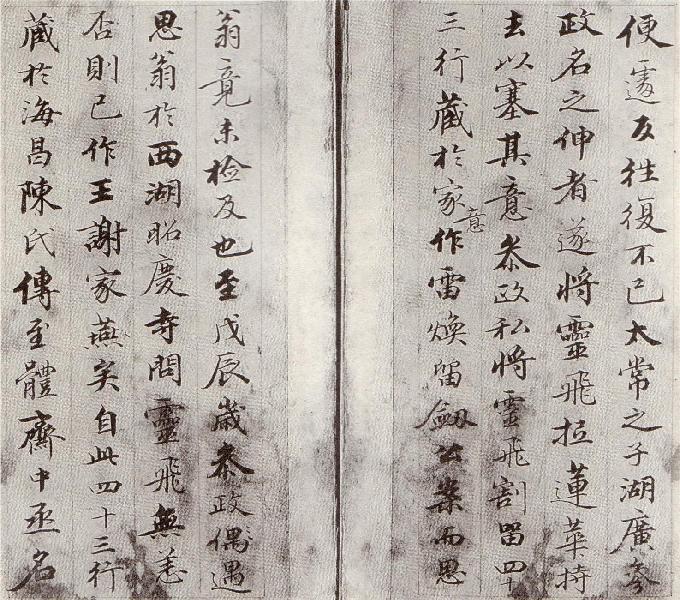 便遽反往復不已太常之子湖廣參
政名之伸者遂將靈飛拉蓮華持
去以塞其意參政私將靈飛割留四十
意
三行藏於家作雷煥留劔公案而思
翁竟未檢及也至戊辰歲參政偶遇
思翁於西湖昭慶寺問靈飛無恙
否則已作王謝家燕矣自此四十三行
藏於海昌陳氏傳至體齋中丞名